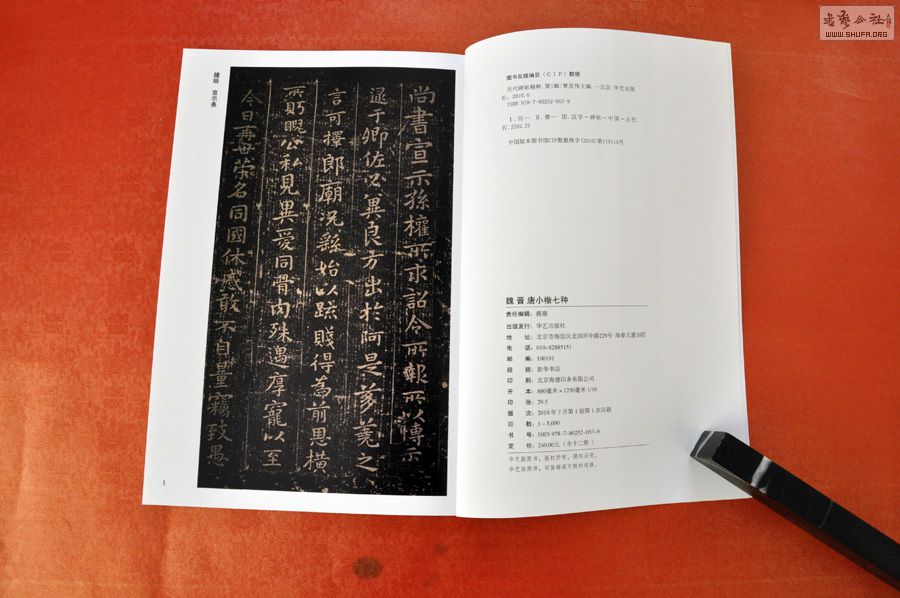 書藝公社
WWW.SHUFA.ORG
鍾繇 宣示表
尚書宣示孫權所求詔令所報所以博示
逮于卿佐必冀良方出於阿是芻蕘之
言可擇郎廟況繇始以疏賤得為前恩橫
所眖公私見異愛同骨肉殊遇厚寵以至
今日再世榮名同國休慼敢不自量竊致愚
1
图书在版编目(CIP)数据
历代碑帖精粹.第1辑/曹彦伟主编.—北京:华艺出版
社,2010.6
ISBN 978-7-80252-057-8
Ⅰ.历… Ⅱ.曹… Ⅲ.汉字—碑帖—中国—古代
Ⅳ.J292.21
中国版本图书馆CIP数据核字(2010)第119115号
魏 晋 唐小楷七种
责任编辑:薇薇
出版发行:华艺出版社
地 址:北京市海淀区北四环中路229号 海泰大厦10层
电 话:010-82885151
邮 编:100191
经 销:新华书店
印 刷:北京海德印务有限公司
开 本:880毫米×1230毫米 1/16
印 张:29.5
版 次:2010年7月第1版第1次印刷
印 数:1~5,000
书 号:ISBN 978-7-80252-057-8
定 价:240.00元(全十二册)
华艺版图书,版权所有,侵权必究。
华艺版图书,印装错误可随时退换。